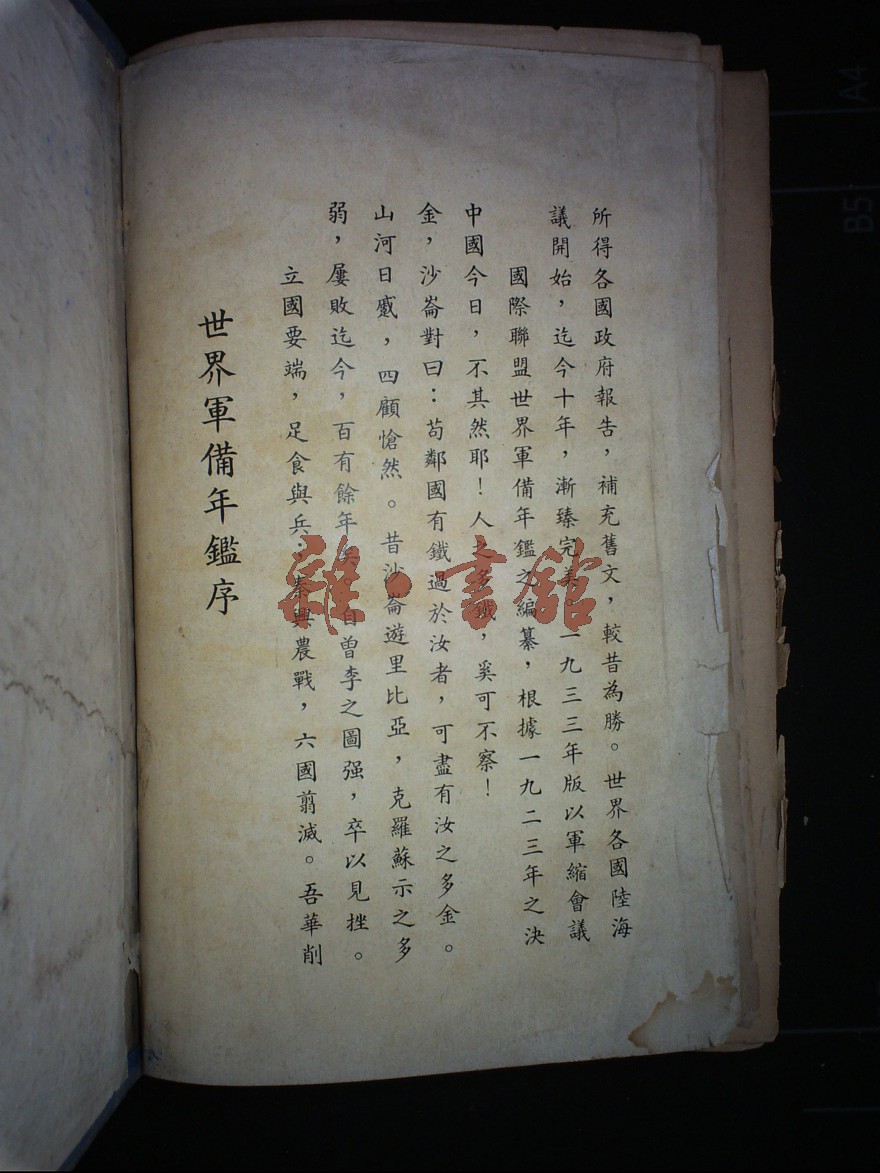 世界軍備年鑑序
立國要端，足食與兵；秦興農戰，六國翦滅。吾華削
弱，屢敗迄今，百有餘年矣。自曾李之圖强，卒以見挫。
山河日蹙，四顧愴然。昔沙崙遊里比亞，克羅蘇示之多
金，沙崙對曰：苟鄰國有鐵過於汝者，可盡有汝之多金。
中國今日，不其然耶！人之多鐵，奚可不察！
國際聯盟世界軍備年鑑之編纂，根據一九二三年之決
議開始，迄今十年，漸臻完美。一九三三年版以軍縮會議
所得各國政府報告，補充舊文，較昔為勝。世界各國陸海
雜·書館
A4
B5